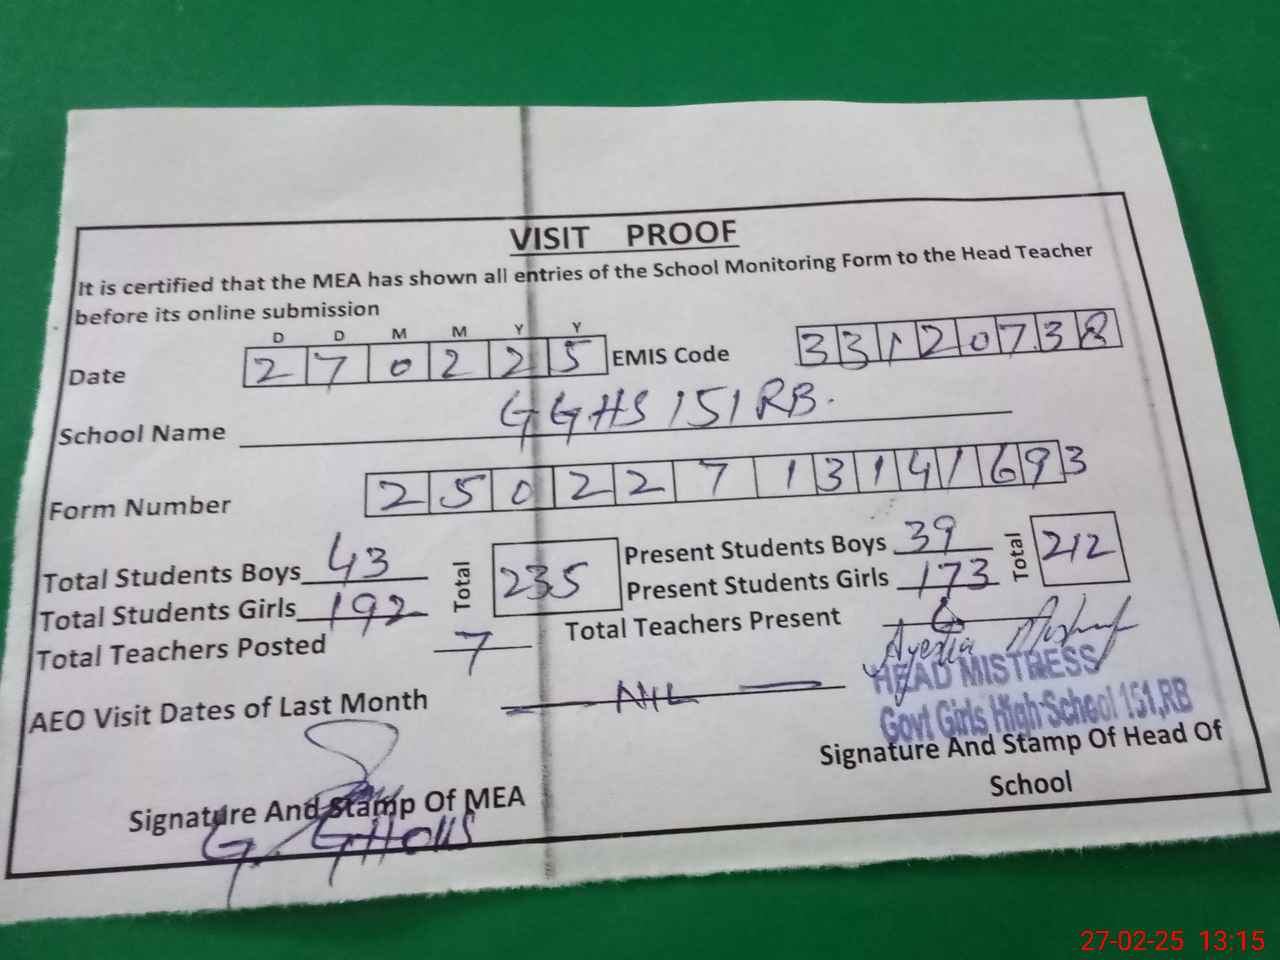 VISIT PROOF
It is certified that the MEA has shown all entries of the School Monitoring Form to the Head Teacher
before its online submission
D D M M Y Y
Date 2 7 0 2 2 5 EMIS Code 3 3 1 2 0 7 3 8
School Name GGHS 151 RB.
Form Number 2 5 0 2 2 7 1 3 1 4 1 6 9 3
Total Students Boys 43 Total 235 Present Students Boys 39 Total 212
Total Students Girls 192 Present Students Girls 173
Total Teachers Posted 7 Total Teachers Present 6
AEO Visit Dates of Last Month NIL
HEAD MISTRESS
Govt Girls High School 151,RB
Signature And Stamp Of MEA
Signature And Stamp Of Head Of
School
27-02-25 13:15